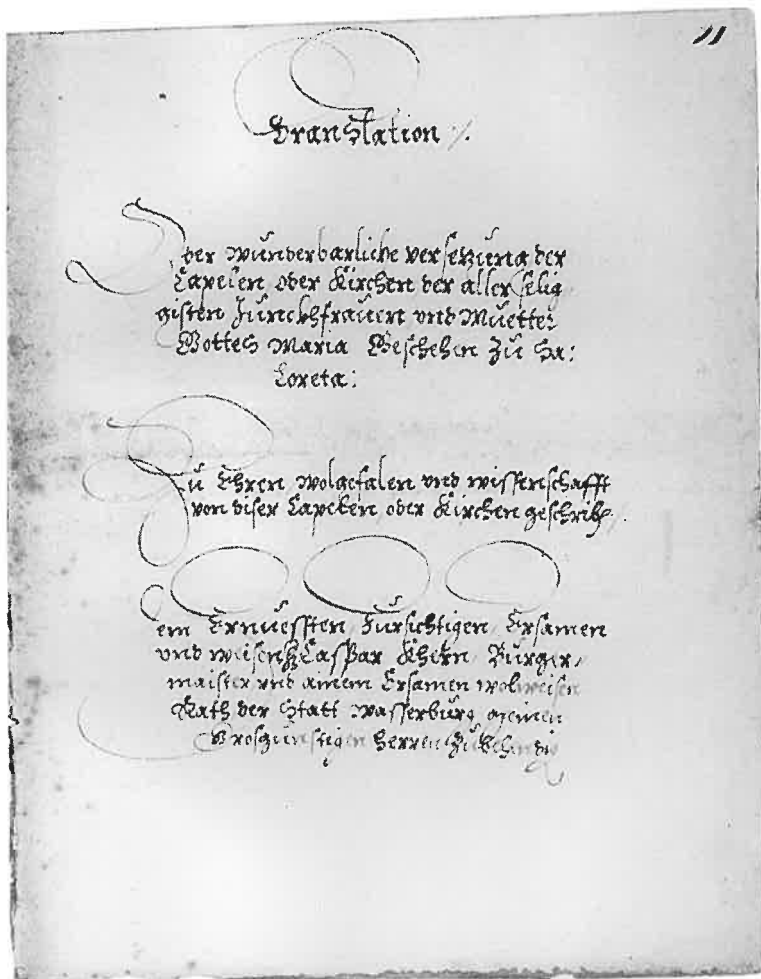 11
Translation ./.
Der wunderbarliche versetzung der
Capelen oder Kirchen der aller selig
gisten Junckhfrauen vnd Muetter
Gottes Maria Geschehen zu Sa:
Loreta:
Zu Ehren wolgefalen vnd wissenschafft
von diser Capelen oder Kirchen geschrib.
Dem Ernuessten Fursichtigen Ersamen
vnd weisen H Caspar Khern Burger,
maister vnd ainem Ersamen wolweisen
Rath der Statt Wasserburg meinen
Grosgunstigen Herren